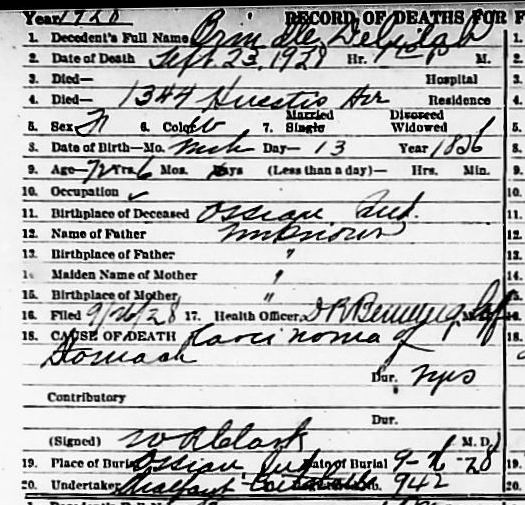 Year 1928 RECORD OF DEATHS FOR F
1. Decedent's Full Name Ormsle Delilah
2. Date of Death Sept. 23, 1928 Hr. P M.
3. Died— Hospital
4. Died— 1344 Huestis Av Residence
5. Sex F 6. Color W 7. Married Single Divorced Widowed
8. Date of Birth—Mo. Mch Day— 13 Year 1856
9. Age— 72 Yrs. 6 Mos. Days (Less than a day)— Hrs. Min.
10. Occupation ✓
11. Birthplace of Deceased Ossian Ind.
12. Name of Father Unknown
13. Birthplace of Father "
14. Maiden Name of Mother "
15. Birthplace of Mother "
16. Filed 9/26/28 17. Health Officer
18. CAUSE OF DEATH Carcinoma of
Stomach
Dur.
Contributory
Dur.
(Signed) W A Clark M. D.
19. Place of Burial Ossian Ind Date of Burial 9-26-28
20. Undertaker No. 942